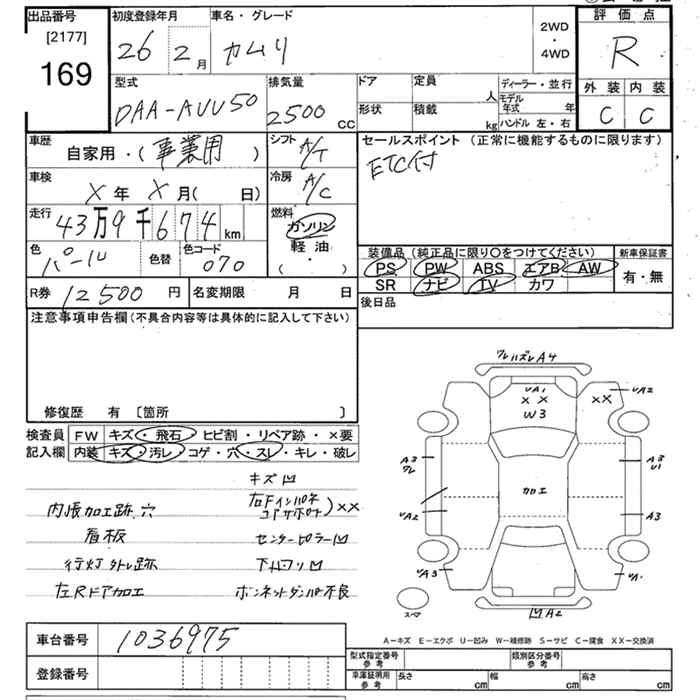 出品番号 [2177] 169
初度登録年月 26 2月
車名・グレード カムリ
2WD・4WD
評価点 R
外装 C 内装 C
型式 DAA-AVV50
排気量 2500 CC
ドア 定員 人
形状 積載 kg
ディーラー・並行
モデル年式 年
ハンドル 左・右
車歴 自家用・(事業用)
シフト A/T
セールスポイント (正常に機能するものに限ります)
ETC付
車検 X年 X月( 日)
冷房 A/C
走行 43万9千674km
燃料 ガソリン 軽油 ( ・ )
色 パール 色替 色コード 070
装備品 (純正品に限り〇をつけてください)
PS PW ABS エアB AW
SR ナビ TV カワ
新車保証書 有・無
R券 12500円 名変期限 月 日
後日品
注意事項申告欄 (不具合内容等は具体的に記入して下さい)
修復歴 有 〔箇所 〕
検査員記入欄
FW キズ・飛石・ヒビ割・リペア跡・×要
内装 キズ・汚レ・コゲ・穴・スレ・キレ・破レ
キズ凹
内張加工跡.穴
右Fインパネ
コアサポート)××
看板
センターピラー凹
行灯外し跡
下廻り凹
左Rドア加工
ボンネットダンパ不良
ワレハズレA4
UA1
× ×
W3
××
UA2
A3
ワレ
加工
A3
U1
UA2
A3
UA3
UA1
スペア
凹A2
A-キズ E-エクボ U-凹み W-補修跡 S-サビ C-腐食 XX-交換済
車台番号 1036975
登録番号
型式指定番号 参考
類別区分番号 参考
車庫証明用 参考 長さ cm 幅 cm 高さ cm